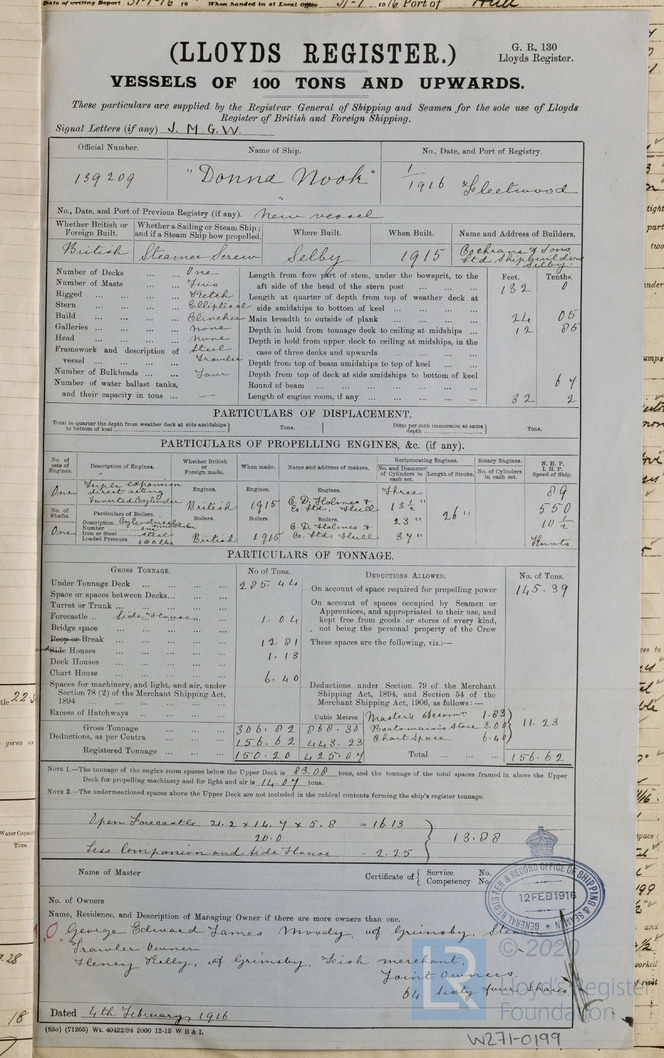 Date of writing Report 31-1-16 19 When handed in at Local Office 31-1 1916 Port of Hull
(LLOYDS REGISTER.)
G. R. 130
Lloyds Register.
VESSELS OF 100 TONS AND UPWARDS.
These particulars are supplied by the Registrar General of Shipping and Seamen for the sole use of Lloyds
Register of British and Foreign Shipping.
Signal Letters (if any) J. M. G. W.
Official Number. Name of Ship. No., Date, and Port of Registry.
139209 "Donna Nook" 1/1916 Fleetwood
No., Date, and Port of Previous Registry (if any). New vessel
Whether British or Foreign Built. Whether a Sailing or Steam Ship; and if a Steam Ship how propelled. Where Built. When Built. Name and Address of Builders.
British Steamer Screw Selby 1915 Cochrane & Sons Ltd. Shipbuilders Selby
Number of Decks ... ... One
Number of Masts ... ... Two
Rigged ... ... ... Ketch
Stern ... ... ... Elliptical
Build ... ... ... Clincher
Galleries ... ... ... None
Head ... ... ... None
Framework and description of vessel ... ... ... Steel Trawler
Number of Bulkheads ... ... Four
Number of water ballast tanks, and their capacity in tons ... —
Feet. Tenths.
Length from fore part of stem, under the bowsprit, to the aft side of the head of the stern post 132 0
Length at quarter of depth from top of weather deck at side amidships to bottom of keel
Main breadth to outside of plank 24 05
Depth in hold from tonnage deck to ceiling at midships 12 85
Depth in hold from upper deck to ceiling at midships, in the case of three decks and upwards
Depth from top of beam amidships to top of keel
Depth from top of deck at side amidships to bottom of keel
Round of beam 67
Length of engine room, if any 32 2
PARTICULARS OF DISPLACEMENT.
Total to quarter the depth from weather deck at side amidships to bottom of keel Tons. Ditto per inch immersion at same depth Tons.
PARTICULARS OF PROPELLING ENGINES, &c. (if any).
No. of sets of Engines. Description of Engines. Whether British or Foreign made. When made. Name and address of makers. Reciprocating Engines. No. and Diameter of Cylinders in each set. Length of Stroke. Rotary Engines. No. of Cylinders in each set. N. H. P. I. H. P. Speed of Ship.
One Triple expansion direct acting Inverted Cylinder Engines. British Engines. 1915 Engines. C. D. Holmes & Co Ltd. Hull Three 13½" 23" 37" 26" 89 550 10½ Knots
No. of Shafts. Particulars of Boilers. Boilers. Boilers. Boilers.
One Description Cylindrical Number one Iron or Steel Steel Loaded Pressure British 1915 C. D. Holmes & Co. Ltd. Hull
PARTICULARS OF TONNAGE.
GROSS TONNAGE. No of Tons. DEDUCTIONS ALLOWED. No. of Tons.
Under Tonnage Deck ... 285.44
Space or spaces between Decks ...
Turret or Trunk ...
Forecastle ... Side Houses 1.04
Bridge space ...
Poop or Break ... 12.81
Side Houses ... 1.13
Deck Houses ...
Chart House ... 6.40
Spaces for machinery, and light, and air, under Section 78 (2) of the Merchant Shipping Act, 1894
Excess of Hatchways ...
On account of space required for propelling power 145.39
On account of spaces occupied by Seamen or Apprentices, and appropriated to their use, and kept free from goods or stores of every kind, not being the personal property of the Crew
These spaces are the following, viz.:—
Deductions under Section 79 of the Merchant Shipping Act, 1894, and Section 54 of the Merchant Shipping Act, 1906, as follows:—
Cubic Metres
Master's Accomn 1.83
Boatswain's Store 3.00 11.23
Chart Space 6.40
Gross Tonnage 306.82 868.30
Deductions, as per Contra 156.62 443.23
Registered Tonnage 150.20 425.07
Total 156.62
NOTE 1.—The tonnage of the engine room spaces below the Upper Deck is 83.08 tons, and the tonnage of the total spaces framed in above the Upper
Deck for propelling machinery and for light and air is 14.07 tons.
NOTE 2.—The undermentioned spaces above the Upper Deck are not included in the cubical contents forming the ship's register tonnage.
Open Forecastle 21.2 x 14.7 x 5.8 = 16.13
20.0 13.88
Less Companion and Side House - 2.25
Name of Master Certificate of { Service No. Competency No.
No. of Owners
Name, Residence, and Description of Managing Owner if there are more owners than one.
George Edward James Moody, of Grimsby, Steam
Trawler Owner
Henry Kelly, of Grimsby, Fish merchant,
Joint Owners
64 Sixty four Shares
Dated 4th February, 1916
(83o) (71265) Wt. 40422/94 2000 12-15 W B & L
GENERAL REGISTER & RECORD OFFICE OF SHIPPING & SEAMEN
12 FEB 1916
LR
© 2020
Lloyd's Register
Foundation
W271-0199